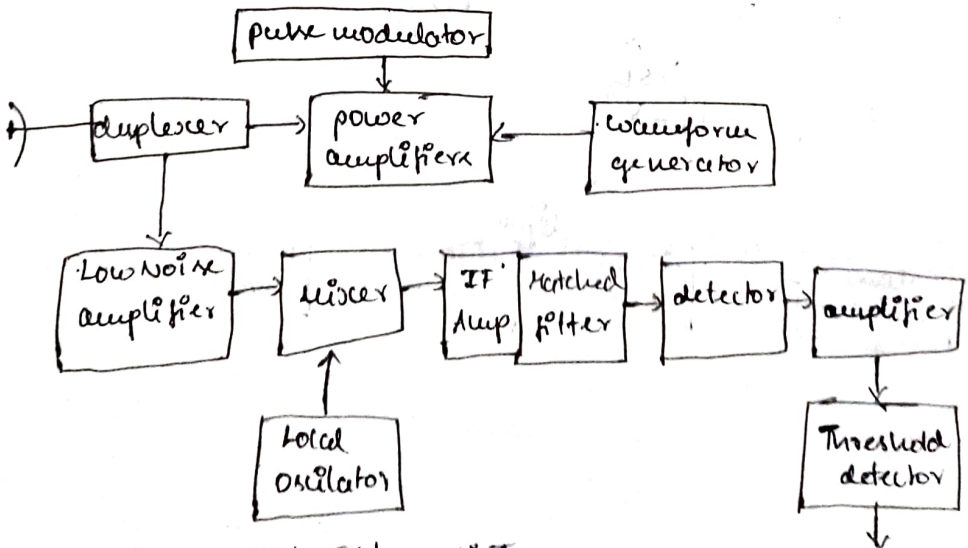 pulse modulator
duplexer
power
amplifiers
waveform
generator
Low Noise
amplifier
mixer
IF
Amp
Matched
filter
detector
amplifier
Local
Oscilator
Threshold
detector